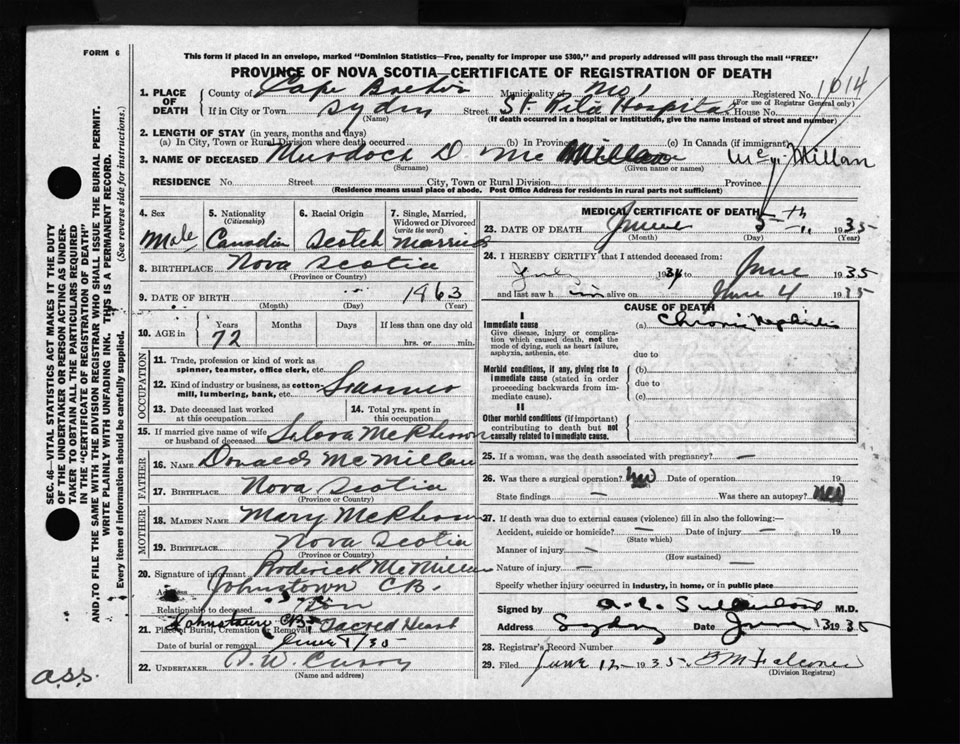 FORM 6
This form if placed in an envelope, marked "Dominion Statistics—Free, penalty for improper use $300," and properly addressed will pass through the mail "FREE"
PROVINCE OF NOVA SCOTIA—CERTIFICATE OF REGISTRATION OF DEATH
1. PLACE OF DEATH
County of Cape Breton Municipality of No 1 Registered No. 1014
(For use of Registrar General only)
If in City or Town Sydney Street St Rita Hospital House No.
(Name) (If death occurred in a hospital or institution, give the name instead of street and number)
2. LENGTH OF STAY (in years, months and days)
(a) In City, Town or Rural Division where death occurred (b) In Province (c) In Canada (if immigrant)
3. NAME OF DECEASED Murdock D. McMillan McMillan
(Surname) (Given name or names)
RESIDENCE No. Street City, Town or Rural Division Province
(Residence means usual place of abode. Post Office Address for residents in rural parts not sufficient)
4. Sex Male
5. Nationality (Citizenship) Canadian
6. Racial Origin Scotch
7. Single, Married, Widowed or Divorced (write the word) Married
8. BIRTHPLACE Nova Scotia
(Province or Country)
9. DATE OF BIRTH 1863
(Month) (Day) (Year)
10. AGE in Years 72 Months Days If less than one day old hrs. or min.
OCCUPATION
11. Trade, profession or kind of work as spinner, teamster, office clerk, etc.
12. Kind of industry or business, as cotton-mill, lumbering, bank, etc.
13. Date deceased last worked at this occupation
14. Total yrs. spent in this occupation
15. If married give name of wife or husband of deceased McPherson
FATHER
16. NAME Donald McMillan
17. BIRTHPLACE Nova Scotia
(Province or Country)
MOTHER
18. MAIDEN NAME Mary McPherson
19. BIRTHPLACE Nova Scotia
(Province or Country)
20. Signature of informant Roderick McMillan
Address Johnstown CB
Relationship to deceased Son
21. Place of Burial, Cremation or Removal Johnstown CB Sacred Heart
Date of burial or removal June 8/35
22. UNDERTAKER P. W. Curry
(Name and address)
MEDICAL CERTIFICATE OF DEATH
23. DATE OF DEATH June 5th 1935
(Month) (Day) (Year)
24. I HEREBY CERTIFY that I attended deceased from:
1934 to June 1935
and last saw him alive on June 4 1935
CAUSE OF DEATH
I
Immediate cause (a) Chronic Nephritis
Give disease, injury or complication which caused death, not the mode of dying, such as heart failure, asphyxia, asthenia, etc.
due to
Morbid conditions, if any, giving rise to immediate cause (stated in order proceeding backwards from immediate cause).
(b)
due to
(c)
II
Other morbid conditions (if important) contributing to death but not causally related to immediate cause.
25. If a woman, was the death associated with pregnancy? —
26. Was there a surgical operation? No Date of operation — 19
State findings — Was there an autopsy? No
27. If death was due to external causes (violence) fill in also the following:—
Accident, suicide or homicide? — Date of injury — 19
(State which)
Manner of injury —
(How sustained)
Nature of injury — —
Specify whether injury occurred in industry, in home, or in public place
Signed by M.D.
Address Sydney Date June 13 1935
28. Registrar's Record Number
29. Filed June 12 1935 Falconer
(Division Registrar)
SEC. 46—VITAL STATISTICS ACT MAKES IT THE DUTY
OF THE UNDERTAKER OR PERSON ACTING AS UNDER-
TAKER TO OBTAIN ALL THE PARTICULARS REQUIRED
IN THE "CERTIFICATE OF REGISTRATION OF DEATH"
AND TO FILE THE SAME WITH THE DIVISION REGISTRAR WHO SHALL ISSUE THE BURIAL PERMIT.
WRITE PLAINLY WITH UNFADING INK. THIS IS A PERMANENT RECORD.
Every item of information should be carefully supplied. (See reverse side for instructions.)
a.s.s.